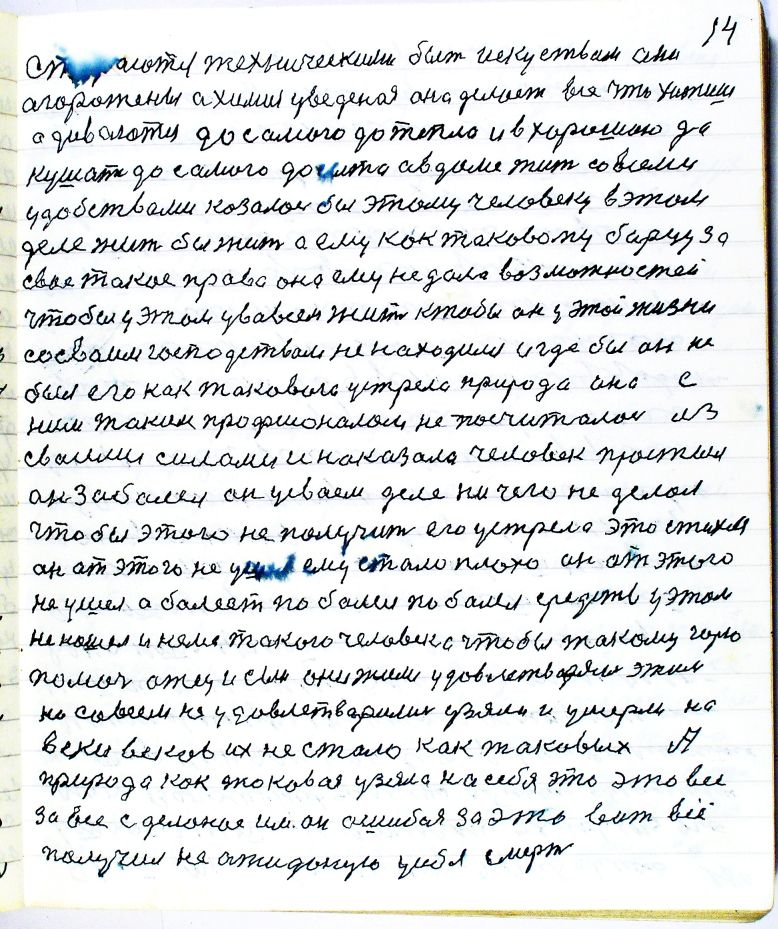 14
аются техническими быт искуством они
агорожены а химия уведеная она делает все что хатиш
а довалоти до самого до тепла и в харошаю да
кушати до самого досыта а в доме жит со всеми
удобствами козалос бы этому человеку в этом
деле жит бы жит а ему как таковому барцу за
свае такое права она ему не дала возможностей
чтобы у этом у ваем жит ктобы он у этой жизни
со сваим господствам не находился и где бы он не
был его как таковога устрела природа она с
ним таким профионалом не посчиталос из
сваими силами и наказала человек простыл
он заболел он у своем деле ничего не делол
чтобы этого не получит его устрела это стихия
он ат этого не ушел ему стало плохо он от этого
не ушел а болеет по болел по болел средств у этом
не нашел и нема такого человека чтобы такому горю
помоч отец и сын они жили удовлетваряли этим
но совсем не удовлетварили узяли и умерли на
веки веков их не стало как таковых А
природа как токовая узяла на себя это это все
за все сделоное им он ошибся за это вот всё
получил не ожиданую у себя смерт